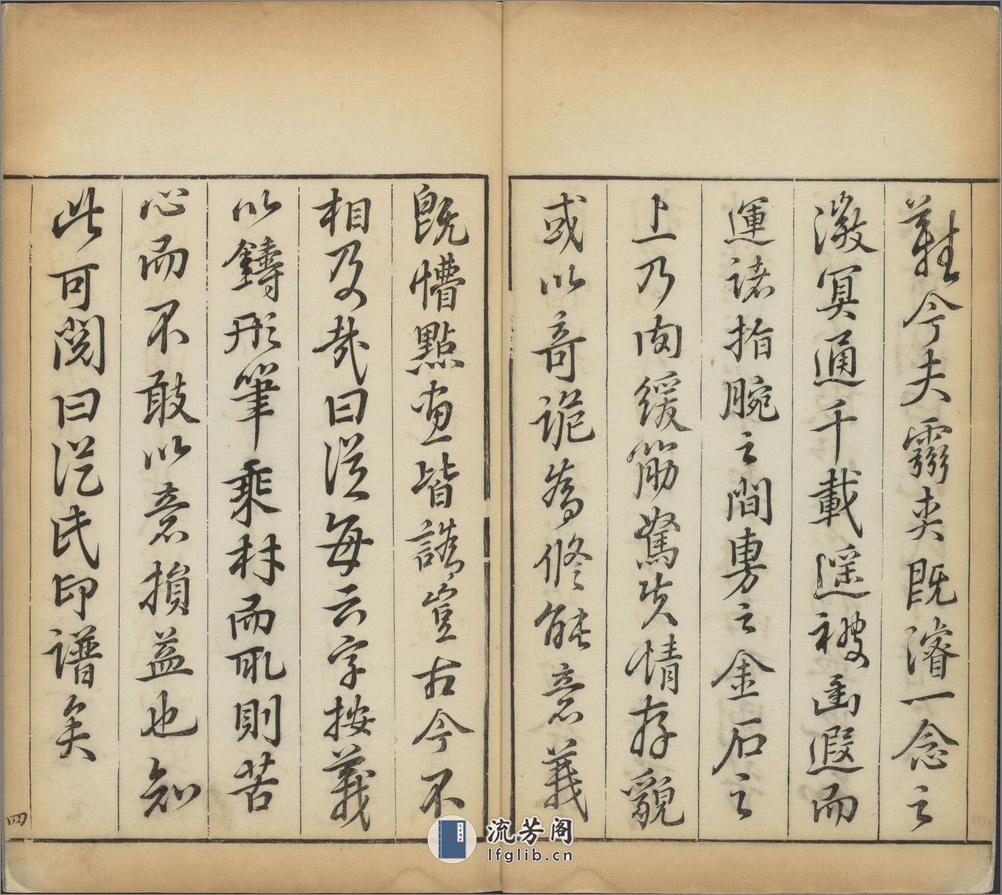 難今夫靈奕既濬一念之
澂冥通千載遥被幽遐而
運諸指腕之間勇之金石之
上乃肉緩筋駑失情存貌
或以奇詭為修能意義
既懵點畫皆譌豈古今不
相及哉曰從每云字按義
以鑄形筆乘材而爾則苦
心而不敢以意損益也知
此可閱曰從氏印譜矣
四
流芳阁
lfglib.cn